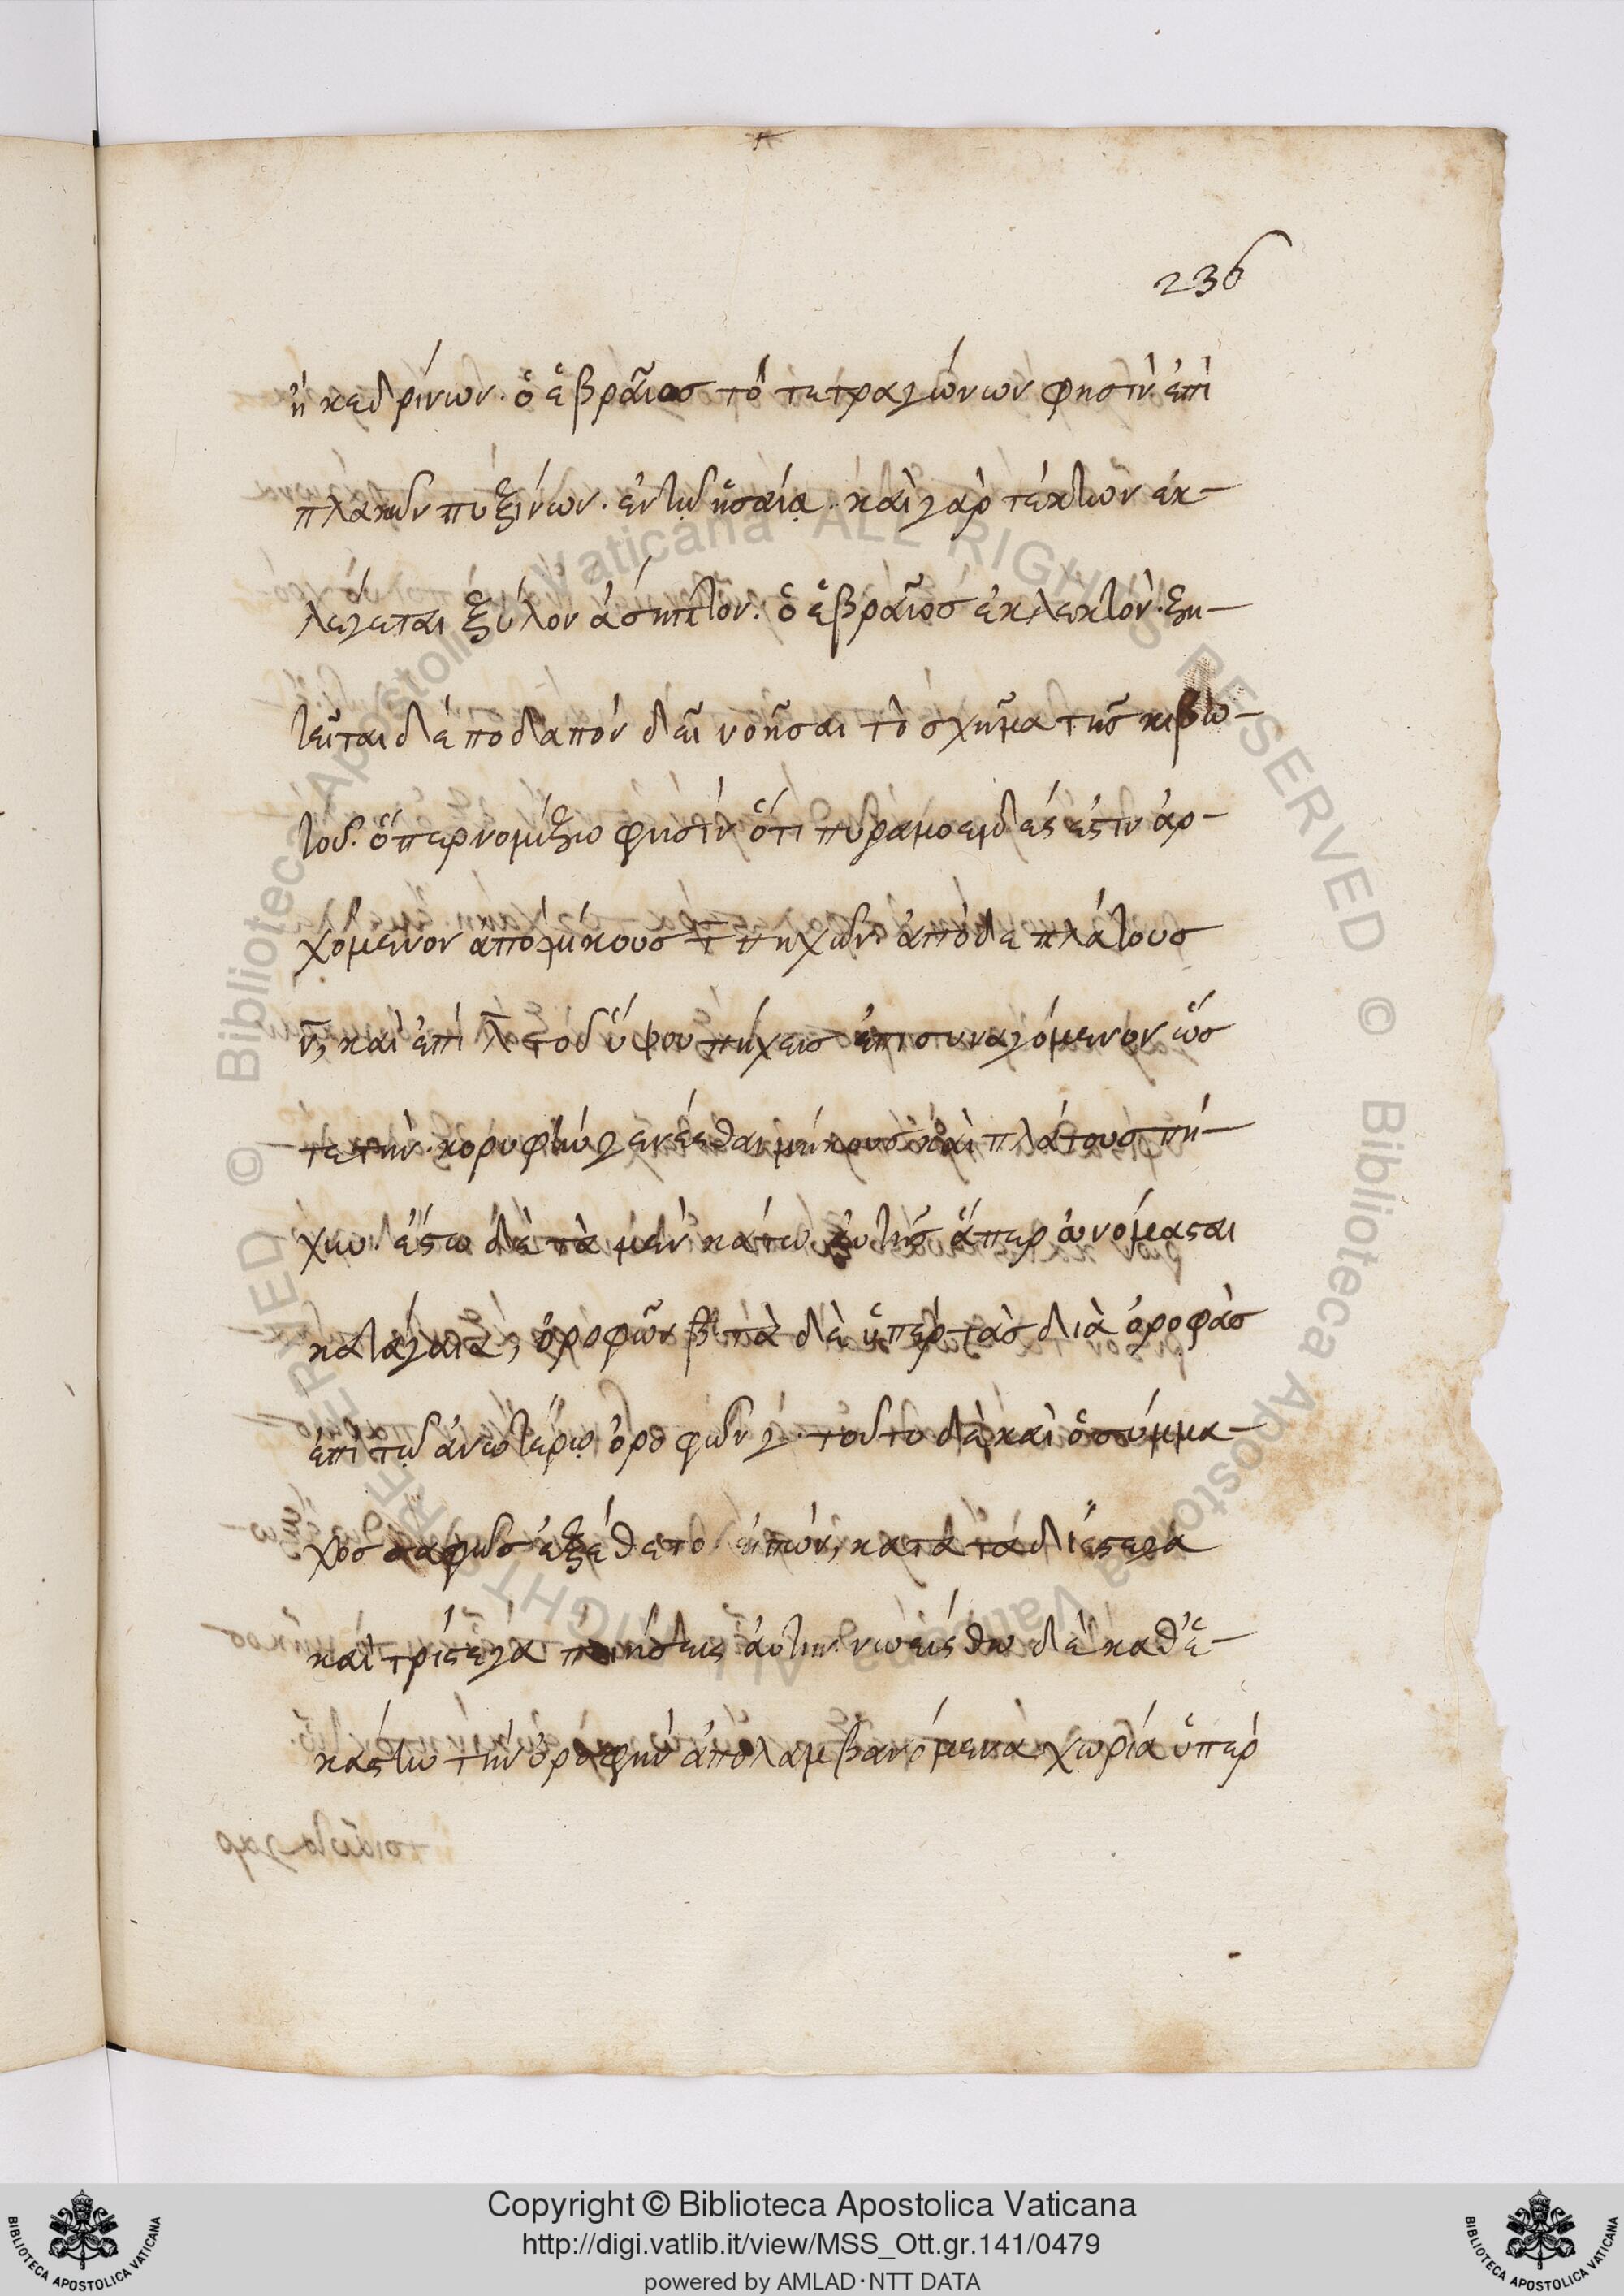 236
ἢ κεδρίνων. ὁ ἑβραῖος τὸ τετραγώνων φησὶν ἐπὶ
πλακῶν πυξίνων. ἐν τῷ ἡσαΐᾳ. καὶ γὰρ τέκτων ἐκ-
λέγεται ξύλον ἄσηπτον. ὁ ἑβραῖος ἐκλεκτὸν. ζη-
τεῖται δέ ποδαπόν δεῖ νοῆσαι τὸ σχῆμα τῆς κιβω-
τοῦ. ὅπερ νομίζω φησὶν ὅτι πυραμοειδές ἐστιν ἀρ-
χόμενον ἀπὸ μήκους τ̄ πηχῶν. ἀπὸ δὲ πλάτους
ν̄, καὶ ἐπὶ λ̄ τοῦ ὕψου πήχεις ἐπισυναγόμενον ὥς
τε τὴν κορυφὴν γενέσθαι μήκους καὶ πλάτους πή-
χην. ἔστω δὲ τὰ μὲν κάτω αὐτῆς ἅπερ ὠνόμασαι
κατάγαια, ὀροφῶν β τὰ δὲ ὑπὲρ τὰς διὰ ὀροφὰς
ἐπὶ τῷ ἀνωτέρῳ ὀροφῶν γ. τοῦτο δὲ καὶ ὁ σύμμα-
χος σαφῶς ἐξέθετο εἰπών, κατὰ τὰ διέστεγα
καὶ τρίστεγα ποιήσεις αὐτὴν νοείσθω δὲ καθ' ἑ-
κάστω τὴν ὀροφὴν ἀπολαμβανόμενα χωρία ὑπὲρ
Copyright © Biblioteca Apostolica Vaticana
http://digi.vatlib.it/view/MSS_Ott.gr.141/0479
powered by AMLAD·NTT DATA